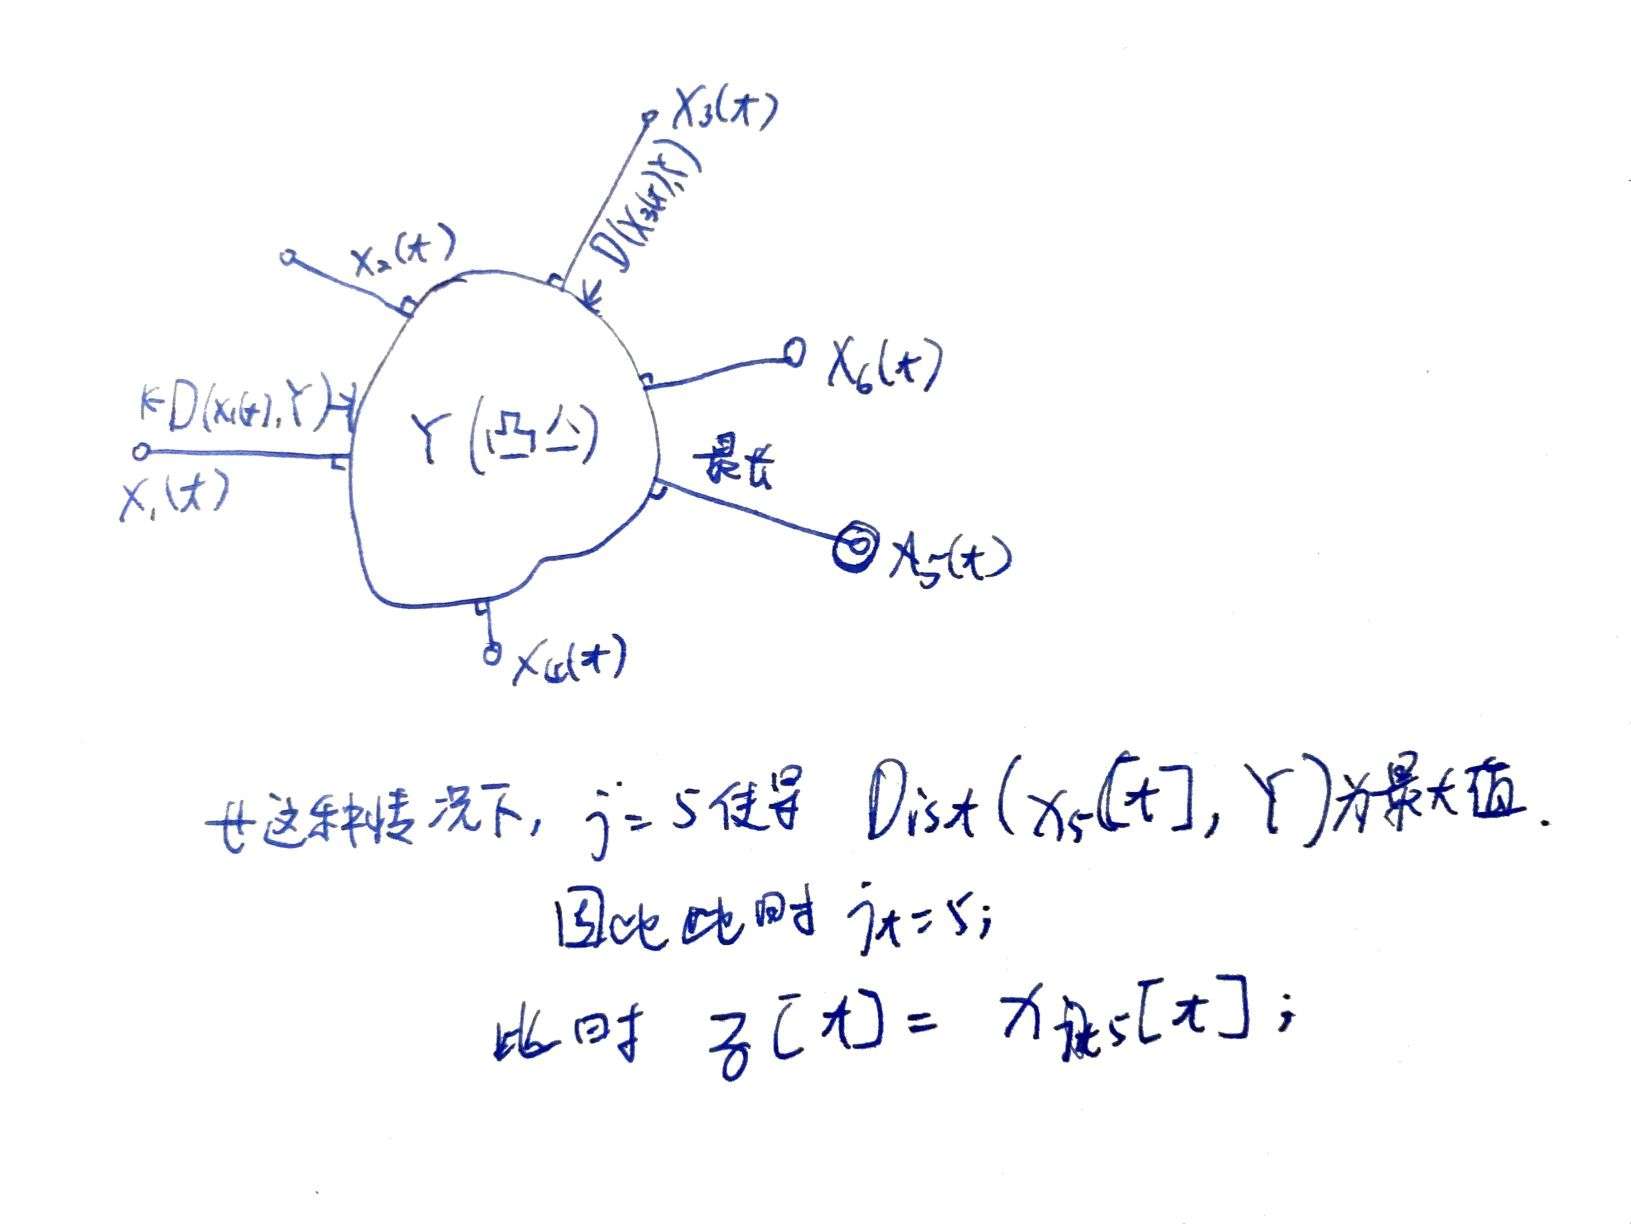 X₃(t)
D(X₃(t),Y)
X₂(t)
X₆(t)
D(x₁(t),Y)
Y(凸公)
最长
X₁(t)
X₅(t)
X₄(t)
这种情况下, j=5使得 Dist(x₅[t], Y)为最大值.
因此此时 jt=5;
此时 z[t] = x 5[t];